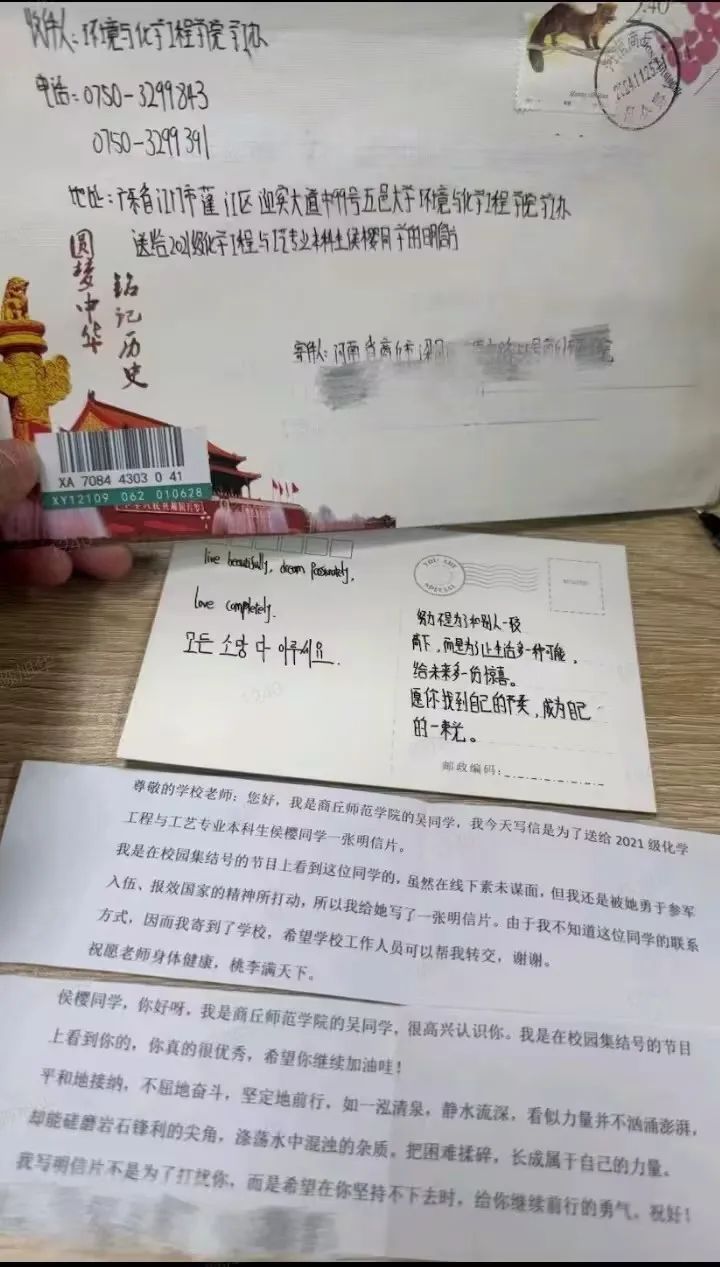 收件人：环境与化学工程学院学工办
2.40
电话：0750-3299843
0750-3299391
2024.11.25
地址：广东省江门市蓬江区迎宾大道中99号五邑大学环境与化学工程学院学工办
送给2021级化学工程与工艺专业本科生侯樱同学的明信片
圆梦中华
铭记历史
寄件人：河南省商丘市
XA 7084 4303 0 41
XY12109 062 010628
live beautifully, dream passionately,
love completely.
모든 소망 다 이루세요.
YOU ARE
SPECIAL
努力不是为了和别人一较
高下，而是为了让生活多一种可能，
给未来多一份惊喜。
愿你找到自己的热爱，成为自己
的一束光。
邮政编码：
尊敬的学校老师：您好，我是商丘师范学院的吴同学，我今天写信是为了送给 2021 级化学
工程与工艺专业本科生侯樱同学一张明信片。
我是在校园集结号的节目上看到这位同学的，虽然在线下素未谋面，但我还是被她勇于参军
入伍、报效国家的精神所打动，所以我给她写了一张明信片。由于我不知道这位同学的联系
方式，因而我寄到了学校，希望学校工作人员可以帮我转交，谢谢。
祝愿老师身体健康，桃李满天下。
侯樱同学，你好呀，我是商丘师范学院的吴同学，很高兴认识你。我是在校园集结号的节目
上看到你的，你真的很优秀，希望你继续加油哇！
平和地接纳，不屈地奋斗，坚定地前行，如一泓清泉，静水流深，看似力量并不汹涌澎湃，
却能磋磨岩石锋利的尖角，涤荡水中混浊的杂质。把困难揉碎，长成属于自己的力量。
我写明信片不是为了打扰你，而是希望在你坚持不下去时，给你继续前行的勇气。祝好！